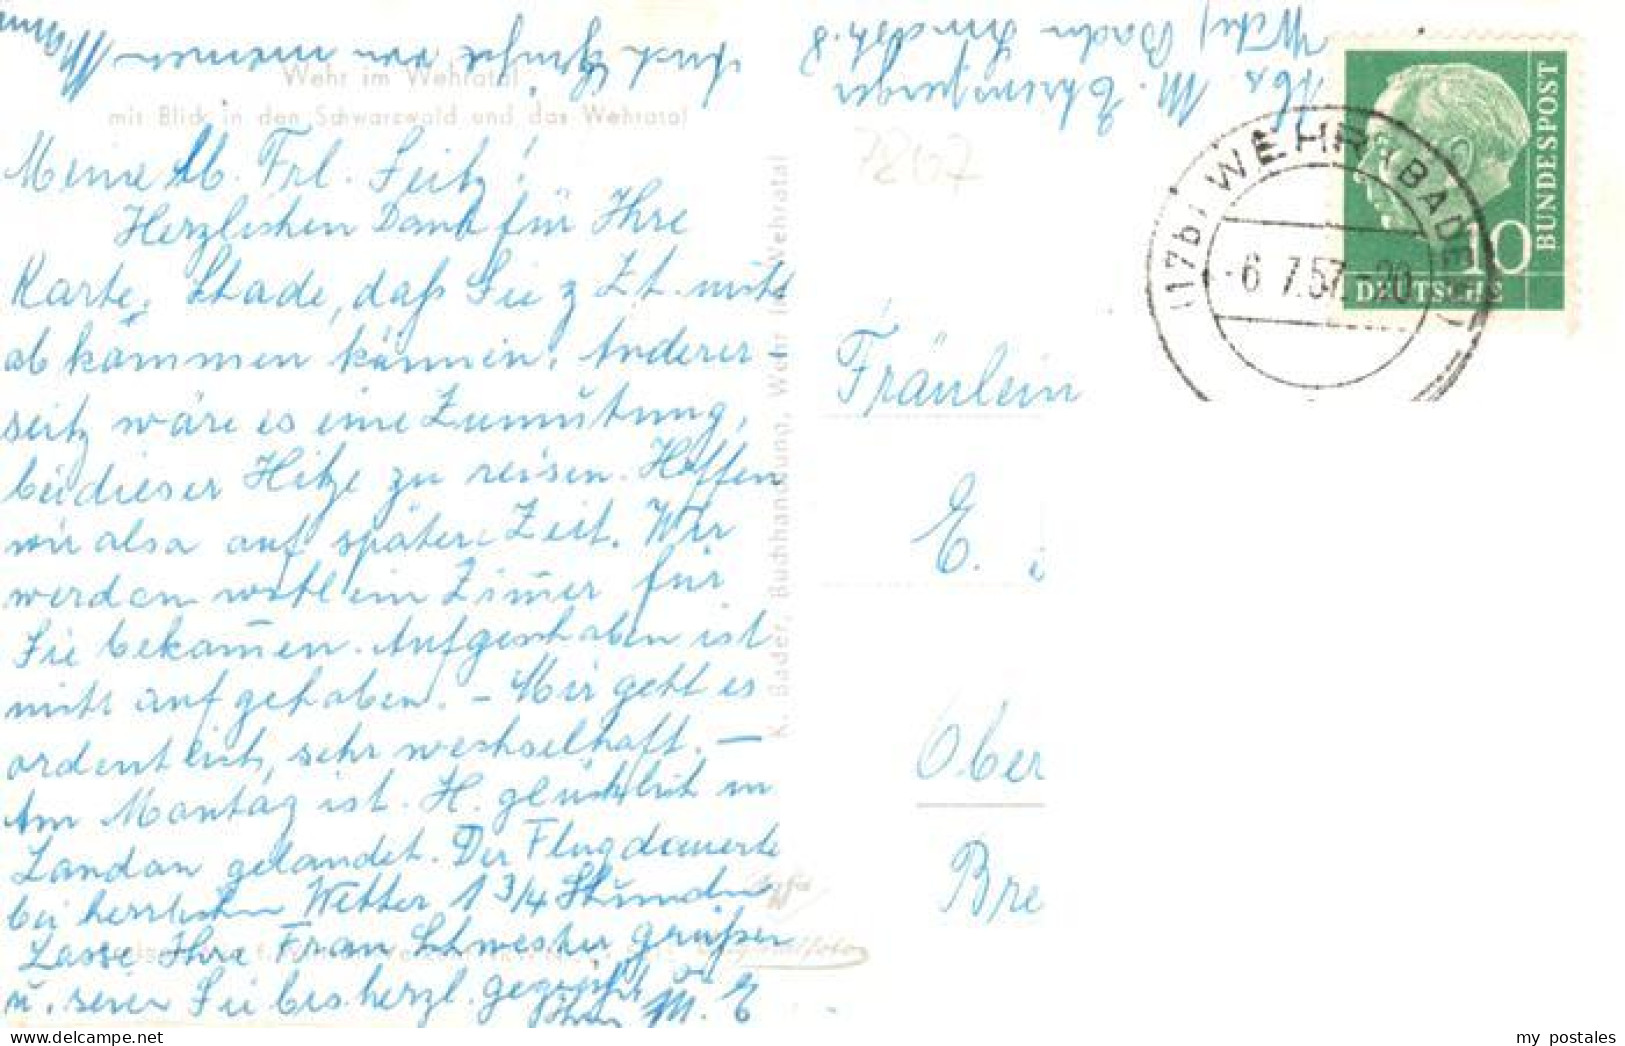 Auch Grüße von meinem Mann
Wehr im Wehratal
mit Blick in den Schwarzwald und das Wehratal
Meine lb. Frl. Seitz!
Herzlichen Dank für Ihre
Karte. Schade, daß Sie z Zt. nicht
abkommen können. Anderer-
seitz wäre es eine Zumutung,
bei dieser Hitze zu reisen. Hoffen
wir also auf spätere Zeit. Wir
werden wohl ein Zim̅er für
Sie bekom̅en. Aufgeschoben ist
nicht aufgehoben. – Mir geht es
ordentlich, sehr wechselhaft. –
Am Montag ist H. glücklich in
London gelandet. Der Flug dauerte
bei herrlichem Wetter 1 3/4 Stunden
Lasse Ihre Frau Schwester grüßen
u. seien Sie bes herzl. gegrüßt
Ihre M. E
K. Bader, Buchhandlung, Wehr im Wehratal
Abs. M. Ehrensperger
Wehr/Baden
7867
(17b) WEHR (BADEN)
-6.7.57.-20
DEUTSCHE
BUNDESPOST
10
Fräulein
E.
Ober
Bre
my postales